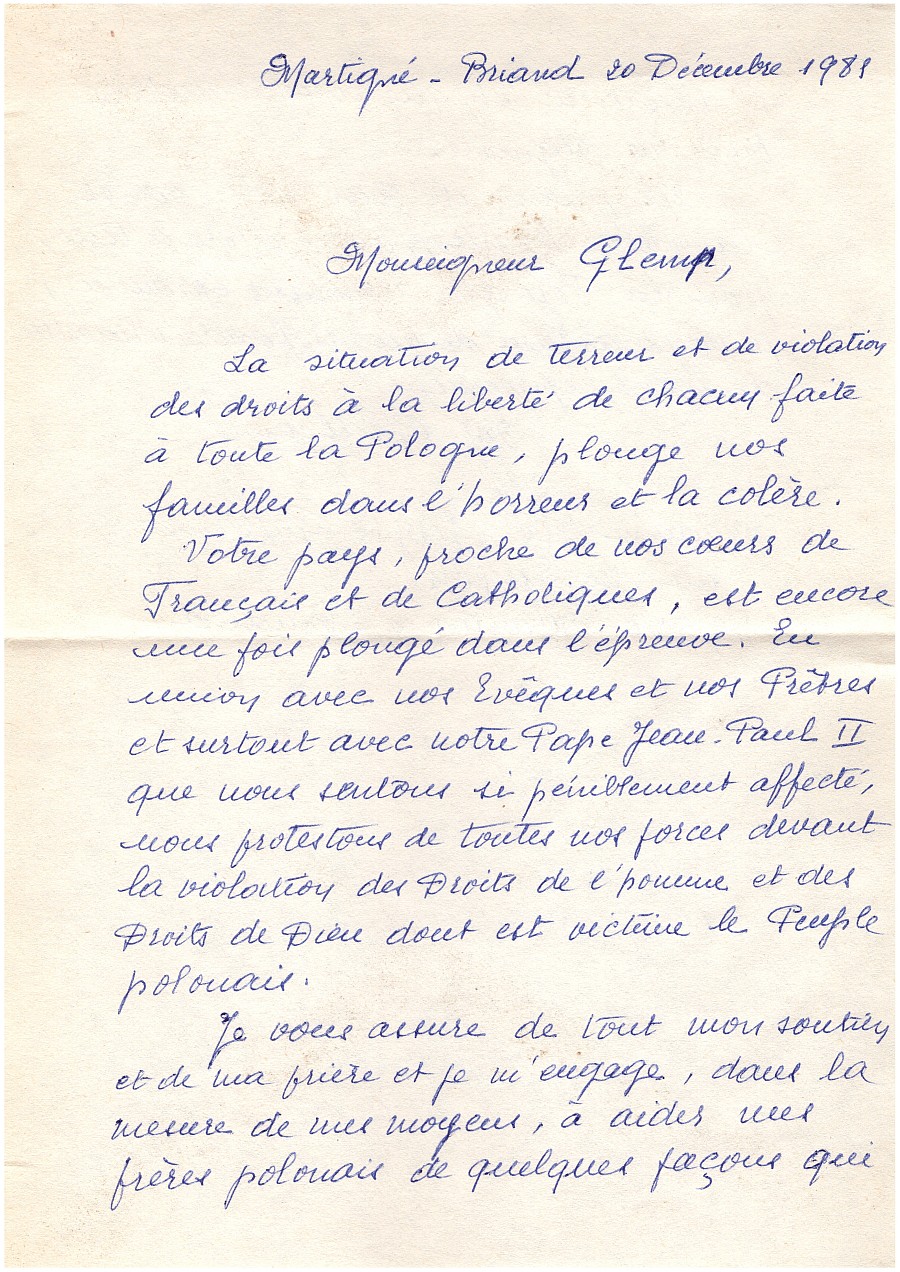 Martigné - Briand 20 Décembre 1981
Monseigneur Glemp,
La situation de terreur et de violation
des droits à la liberté de chacun faite
à toute la Pologne, plonge nos
familles dans l'horreur et la colère.
Votre pays, proche de nos cœurs de
Français et de Catholiques, est encore
une fois plongé dans l'épreuve. En
union avec nos Evêques et nos Prêtres
et surtout avec notre Pape Jean-Paul II
que nous sentons si péniblement affecté,
nous protestons de toutes nos forces devant
la violation des Droits de l'homme et des
Droits de Dieu dont est victime le Peuple
polonais.
Je vous assure de tout mon soutien
et de ma prière et je m'engage, dans la
mesure de mes moyens, à aider mes
frères polonais de quelques façons qui